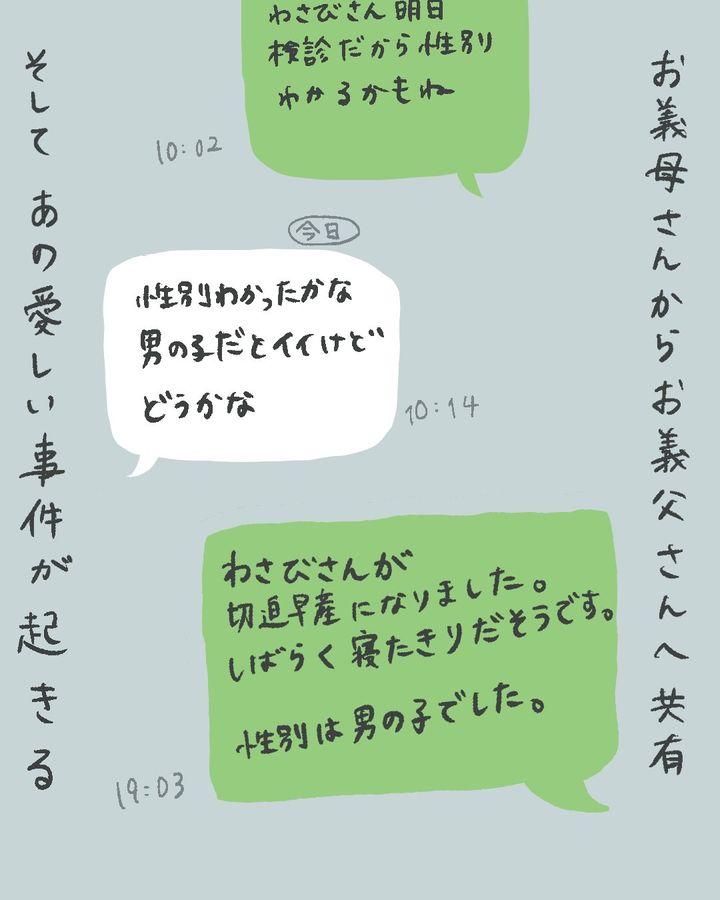 お義母さんからお義父さんへ共有
わさびさん明日
検診だから性別
わかるかもね
10:02
今日
性別わかったかな
男の子だとイイけど
どうかな
10:14
わさびさんが
切迫早産になりました。
しばらく寝たきりだそうです。
性別は男の子でした。
19:03
そしてあの愛しい事件が起きる